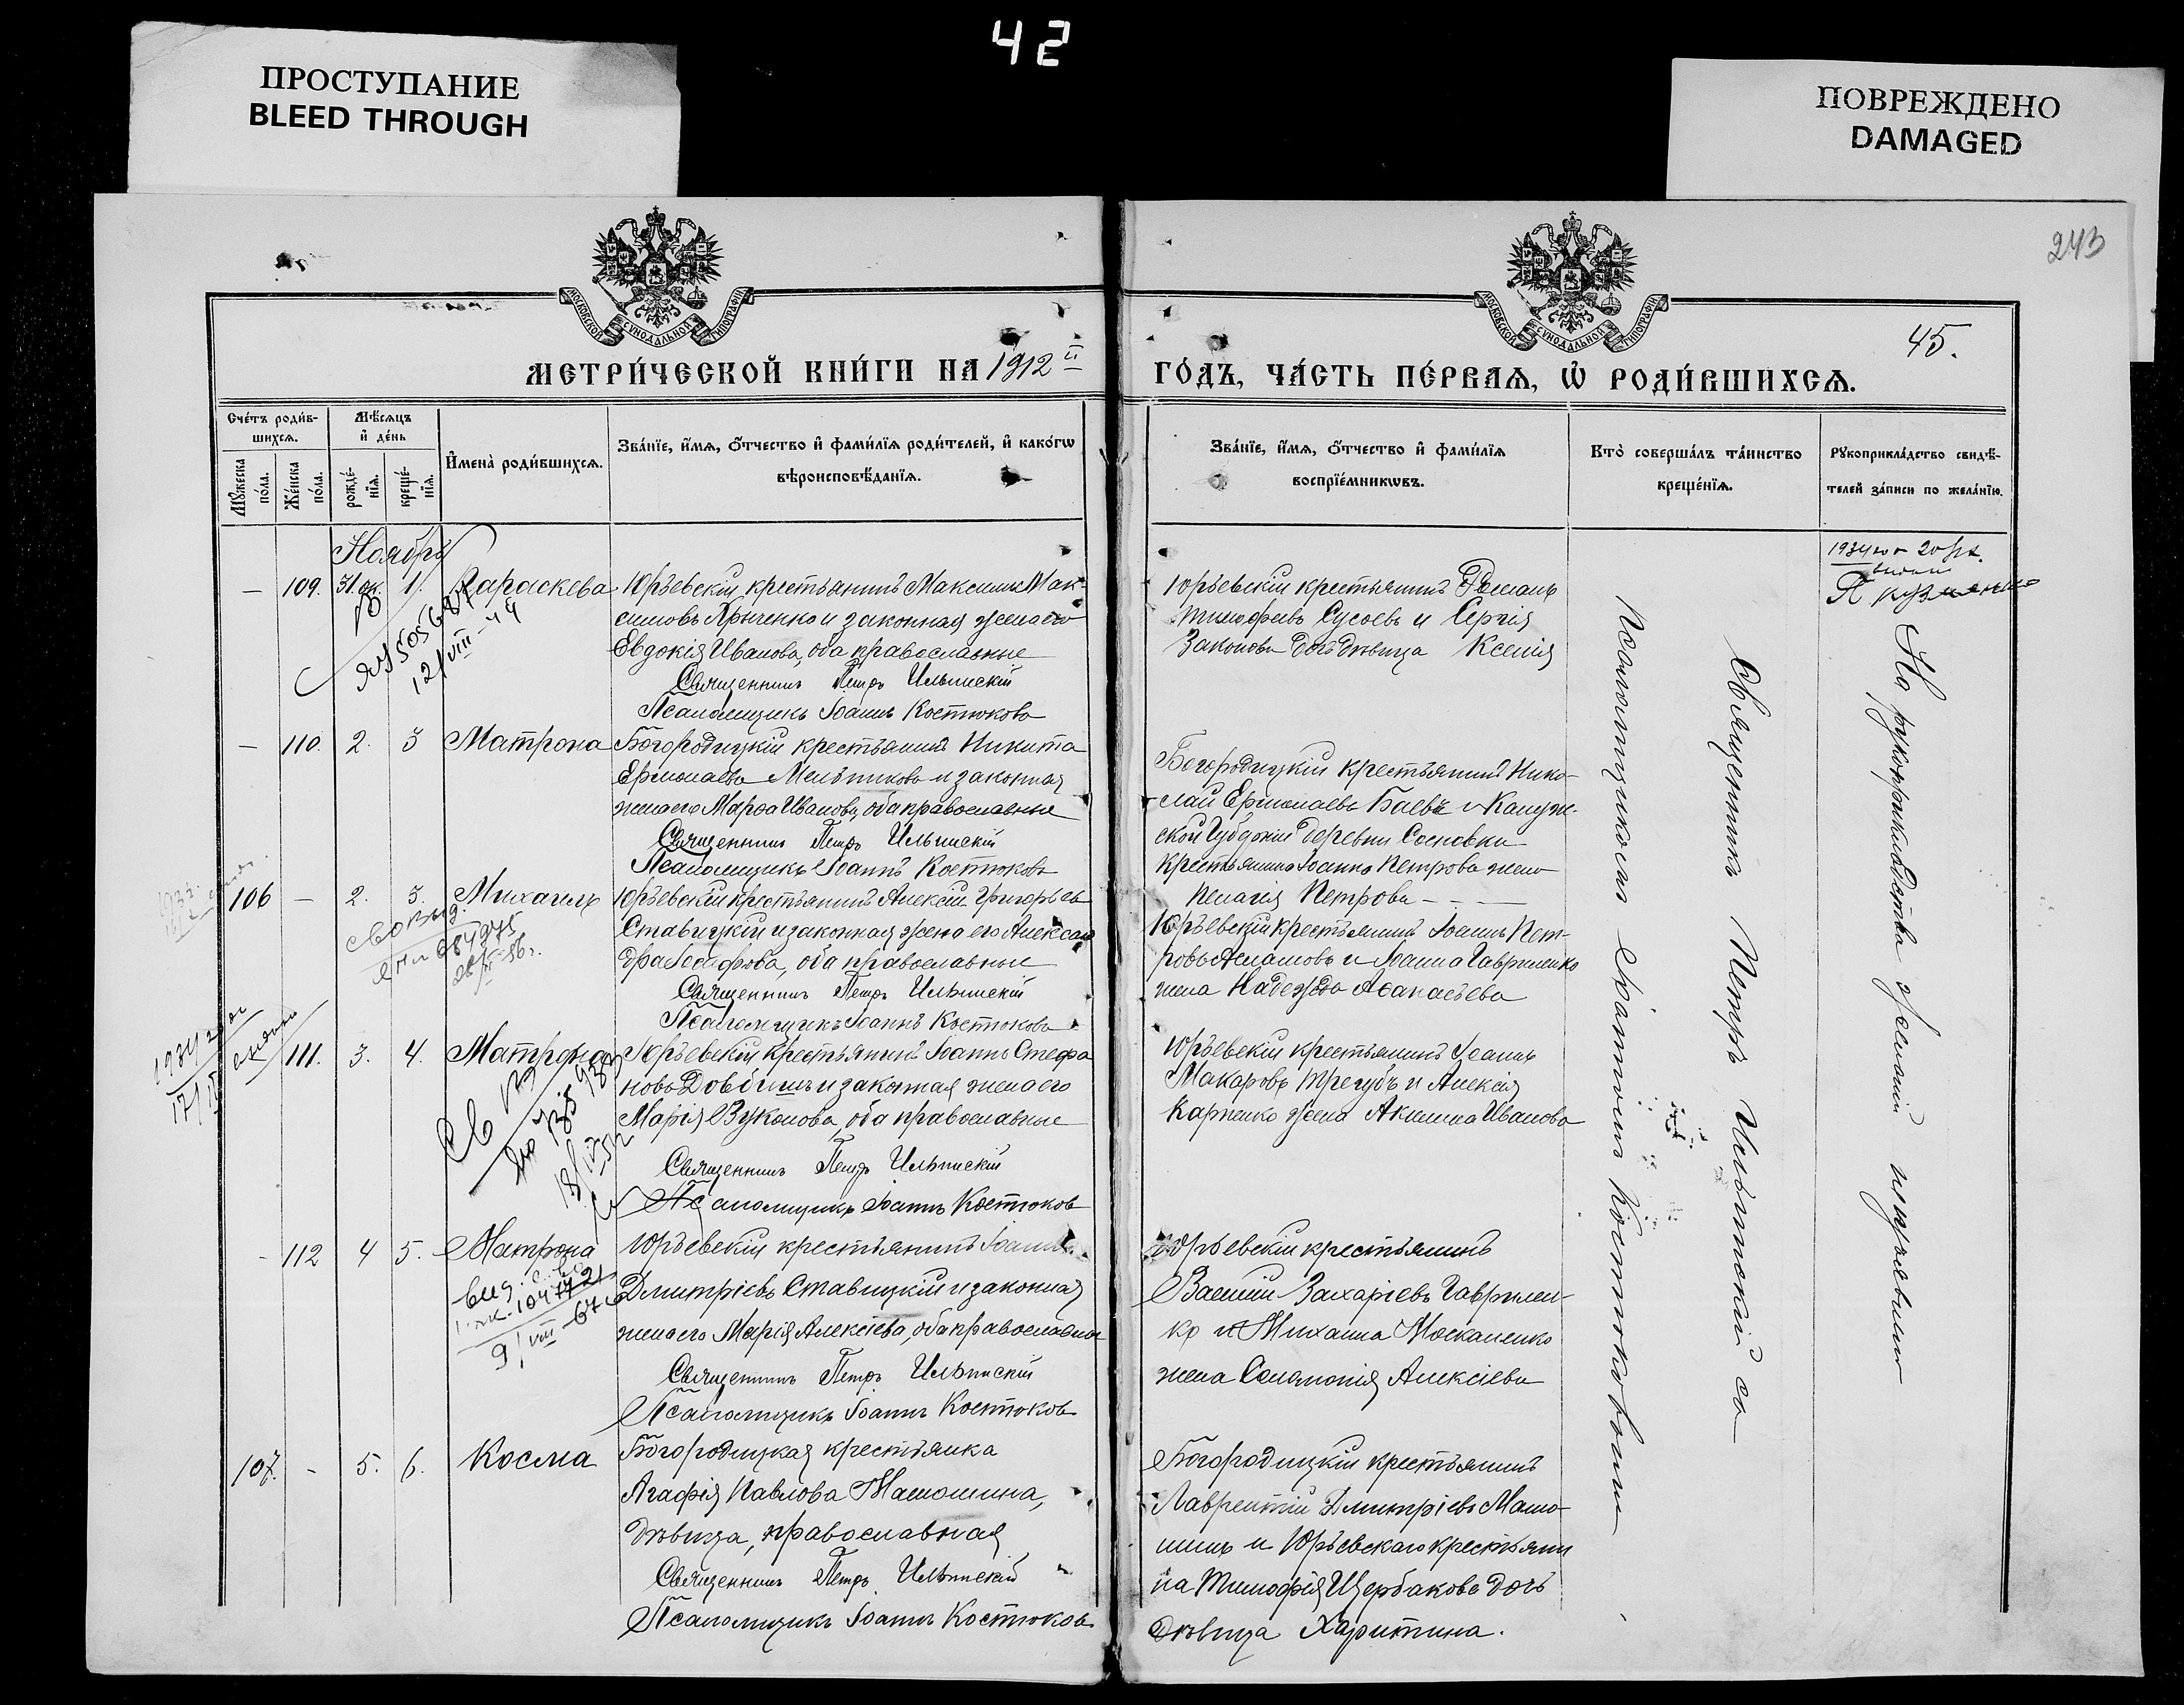 42
ПРОСТУПАНИЕ
BLEED THROUGH
ПОВРЕЖДЕНО
DAMAGED
243
45.
МОСКОВСКОЙ СѴНОДАЛЬНОЙ ТИПОГРАФІИ
МОСКОВСКОЙ СѴНОДАЛЬНОЙ ТИПОГРАФІИ
МЕТРИ́ЧЕСКОЙ КНИ́ГИ НА 1912 й
ГО́ДЪ, ЧА́СТЬ ПЕ́РВАѦ, Ѡ҆ РОДИ́ВШИХСѦ.
Сче́тъ роди́в-
шихсѧ.
Мѣ́сѧцъ
и҆ де́нь
Мꙋ́жеска
по́ла.
Же́нска
по́ла.
рожде́-
нїѧ.
креще́-
нїѧ.
И҆мена̀ роди́вшихсѧ.
Зва́нїе, и҆́мѧ, ѻ҆́тчество и҆ фами́лїѧ роди́телей, и҆ како́гѡ
вѣроисповѣ́данїѧ.
Зва́нїе, и҆́мѧ, ѻ҆́тчество и҆ фами́лїѧ
воспрїе́мникѡвъ.
Кто̀ соверша́лъ та́инство
креще́нїѧ.
Рꙋкоприкла́дство свидѣ́-
телей за́писи по жела́нїю.
Ноябрь
— 109. 31 ок. 1. Параскева
Юрьевскій крестьянинъ Максимъ Мак-
симовъ и законная жена его
Евдокія Иванова, оба православные
Священникъ Петръ Ильинскій
Псаломщикъ Іоаннъ Костюковъ
12/VIII-49
Юрьевскій крестьянинъ Романъ
Тимофеевъ Сусоевъ и Сергія
дочь девица Ксенія
— 110. 2. 3 Матрона
Богородицкій крестьянинъ Никита
Ермолаевъ Мельниковъ и законная
жена его Марѳа Иванова, оба православные
Священникъ Петръ Ильинскій
Псаломщикъ Іоаннъ Костюковъ
Богородицкій крестьянинъ Нико-
лай Ермолаевъ Баевъ и Калуж-
ской губерніи деревни Сосновки
крестьянина Іоанна Петрова жена
Пелагія Петрова
106 — 2. 3. Михаилъ
Юрьевскій крестьянинъ Алексій Григорьевъ
Ставицкій и законная жена его Алексан
дра Іосифова, оба православные
Священникъ Петръ Ильинскій
Псаломщикъ Іоаннъ Костюковъ
Юрьевскій крестьянинъ Іоаннъ Пет-
ровъ и Іоанна Гавриленко
жена Надежда Аѳанасьева
111. 3. 4. Матрона
Юрьевскій крестьянинъ Іоаннъ Стефа
новъ Довбишъ и законная жена его
Марія Вуколова, оба православные
Священникъ Петръ Ильинскій
Псаломщикъ Іоаннъ Костюков
Юрьевскій крестьянинъ Іоаннъ
Макаровъ Трегубъ и Алексія
Карпенко жена Акилина Иванова
- 112 4 5. Матрона
Юрьевскій крестьянинъ Іоаннъ
Дмитріевъ Ставицкій и законная
жена его Марія Алексіева, оба православные
Священникъ Петръ Ильинскій
Псаломщикъ Іоаннъ Костюков
Юрьевскій крестьянинъ
Василій Захаріевъ Гаврилен-
ко и Михаила Москаленко
жена Соломонія Алексіева
107. - 5. 6. Косма
Богородицкая крестьянка
Агафія Павлова Мамошина,
дѣвица, православная
Священникъ Петръ Ильинскій
Псаломщикъ Іоаннъ Костюков
Богородицкій крестьянинъ
Лаврентій Дмитріевъ Мамо-
шинъ и Юрьевскаго крестьяни
на Тимофія Щербакова дочь
дѣвица Харитина.
Священникъ Петръ Ильинскій со
псаломщикомъ Іоанномъ Костюковымъ